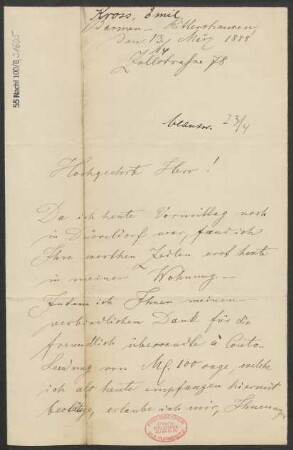 Kross, Emil
Barmen-Rittershausen
den 13 März 1888
14
Zollstrasse 78
55 Nachl 100/B,31605
beantw. 23/4
Hochgeehrter Herr!
Da ich heute Vormittag noch
in Düsseldorf war, fand ich
Ihre werthen Zeilen erst heute
in meiner Wohnung –
Indem ich Ihnen meinen
verbindlichen Dank für die
freundlich übersandte à Conto-
Sendung von M. 100 sage, welche
ich als heute empfangen hiermit
bestätige, erlaube ich mir, Ihnen